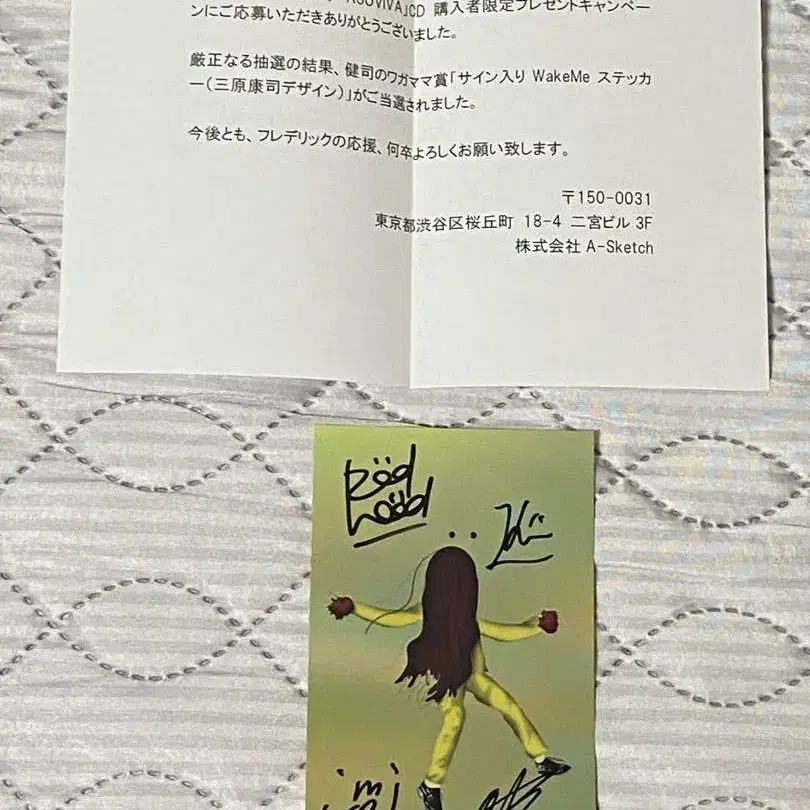 ASOVIVA」CD 購入者限定プレゼントキャンペー
ンにご応募いただきありがとうございました。
厳正なる抽選の結果、健司のワガママ賞「サイン入り WakeMe ステッカ
ー(三原康司デザイン)」がご当選されました。
今後とも、フレデリックの応援、何卒よろしくお願い致します。
〒150-0031
東京都渋谷区桜丘町 18-4 二宮ビル 3F
株式会社 A-Sketch